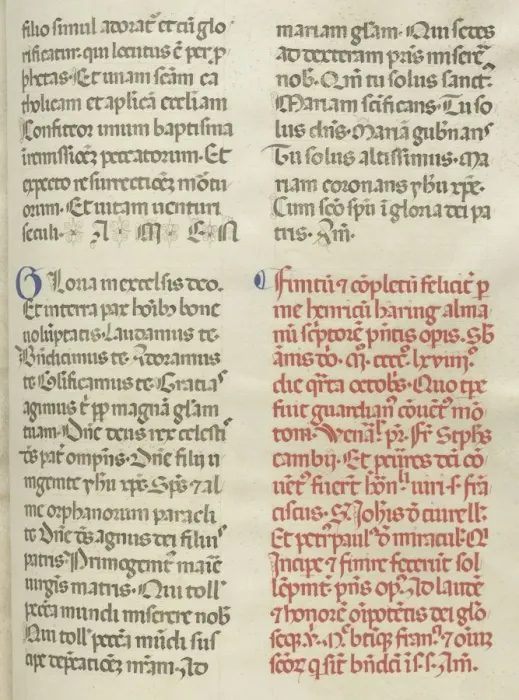 filio simul adorat᷑ et cū glo
rificatur. qui locutus ē per p̱
phetas. Et unam scām ca
tholicam et aplicā eccliam
Confiteor unum baptisma
in remissiōeȝ peccatorum. Et
expecto resurrectiōeȝ mortu
orum. Et uitam uenturi
seculi. A M E N
Gloria in excelsis deo.
Et in terra pax hoib᷒ bone
uoluptatis. Laudamus te.
Bn̄dicimus te. Adoramus
te Glificamus te. Gracias
agimus t᷑ pp̱ magnā glām
tuam. Dn̄e deus rex celesti᷒
d̄s pat᷑ omp̄ns. Dn̄e fili u
nigenite yhū xp̄e. Sp̄s ⁊ al
me orphanorum paracli
te Dn̄e d̄s agnus dei filius
patris. Primogenit᷒ marie
uirgīs matris. Qui toll᷒
pctā mundi miserere nob᷒
Qui toll᷒ pctā mūdi sus
cipe dep̄catiōeȝ nr̄am. Ad
mariam glām. Qui sedes
ad dexteram pr̄is miserē
nob᷒. Qm̄ tu solus sanct᷒.
Mariam scīficans. Tu so
lus dn̄s. Mariā gub̄nans
Tu solus altissimus. Ma
riam coronans yhū xp̄e.
Cum scō sp̄u ī gloria dei pa
tris. Am̄.
Finitū ⁊ cōpletū felicit᷑ p̱
me henricū haring alma
nū sc̄ptorē p̄ntis opis. Sb᷒
anīs dō. Mº. cccc. lxviiijº.
die q̄rta octob᷒. Quo tp̄e
fuit guardian᷒ cōuēt᷒ mō
tom. Uen̄al᷒ pr̄. Fr̄ Steph᷒
cambij. Et
uēt᷒ fuer̄t
ciscus. S. Joh̄is d̄ ciurell᷒.
Et petri pauli d̄ miracul᷒. Q̄
Incipe ⁊ finire fecerūt sol
lēpnit᷑ p̄ns op᷒. Ad laudē
⁊ honorē oīpotētis dei glo
⁊ oīuȝ
scōȝ q̄ sit bn̄dc̄t ī s. s. Am̄.